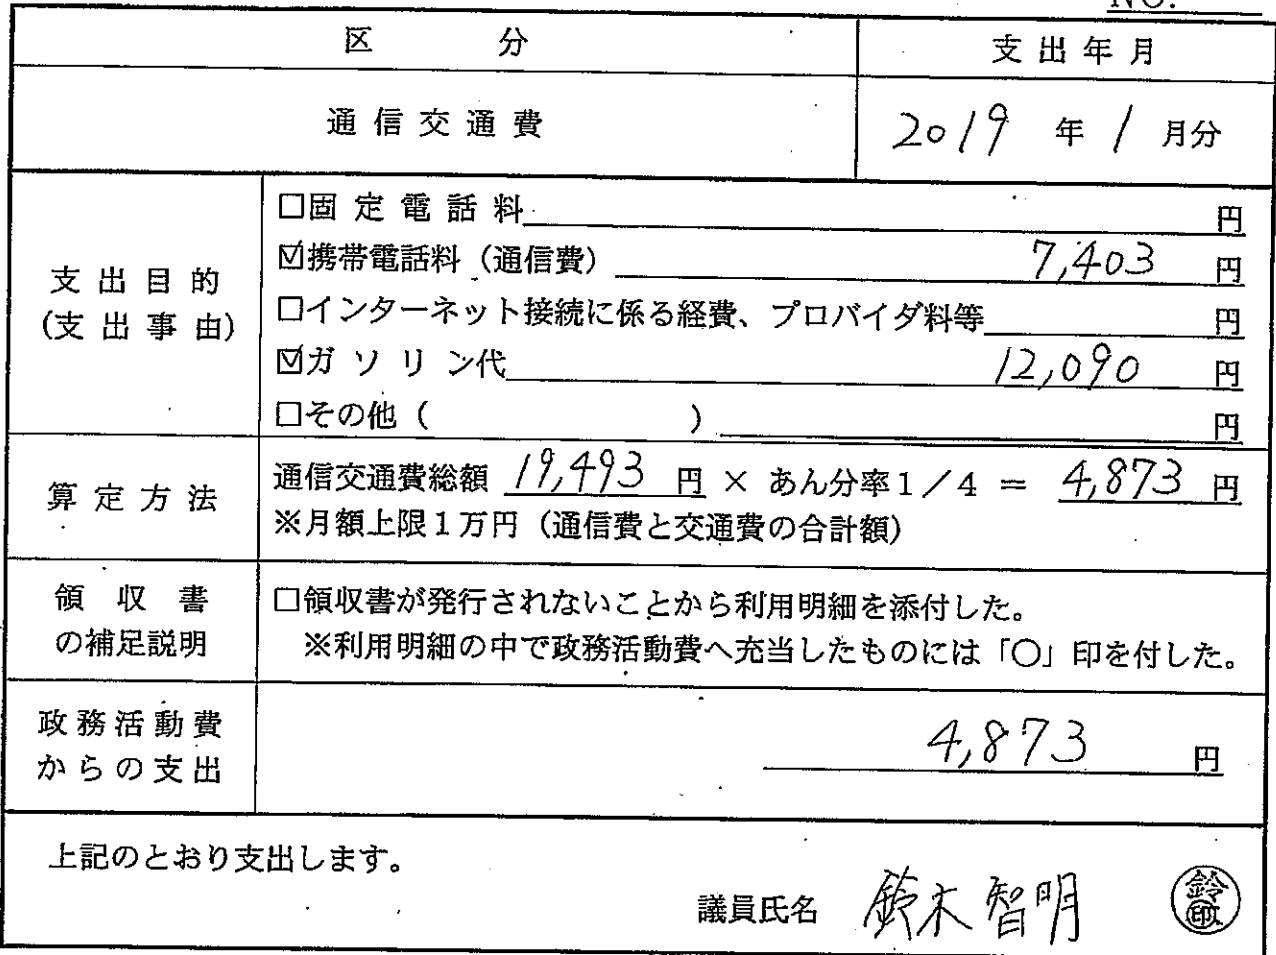 NO.
区 分
支出年月
通信交通費
2019 年 1 月分
支出目的
(支出事由)
□固定電話料 円
☑携帯電話料（通信費） 7,403 円
□インターネット接続に係る経費、プロバイダ料等 円
☑ガソリン代 12,090 円
□その他（ ） 円
算定方法
通信交通費総額 19,493 円 × あん分率1／4 ＝ 4,873 円
※月額上限1万円（通信費と交通費の合計額）
領収書
の補足説明
□領収書が発行されないことから利用明細を添付した。
※利用明細の中で政務活動費へ充当したものには「○」印を付した。
政務活動費
からの支出
4,873 円
上記のとおり支出します。
議員氏名 鈴木智明 鈴印